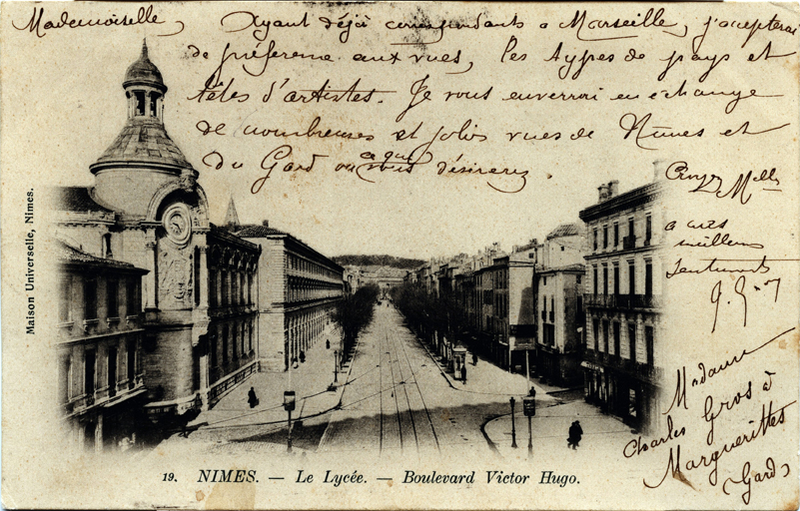 Mademoiselle,
Ayant déjà correspondants à Marseille, j'accepterai
de préférence aux vues, les types de pays et
têtes d'artistes. Je vous enverrai en échange
de nombreuses et jolies vues de Nîmes et
du Gard ou ce que vous désirerez.
Croyez Melle
à mes
meilleurs
sentiments
Madame
Charles Gros à
Marguerittes
(Gard)
Maison Universelle, Nimes.
19. NIMES. — Le Lycée. — Boulevard Victor Hugo.